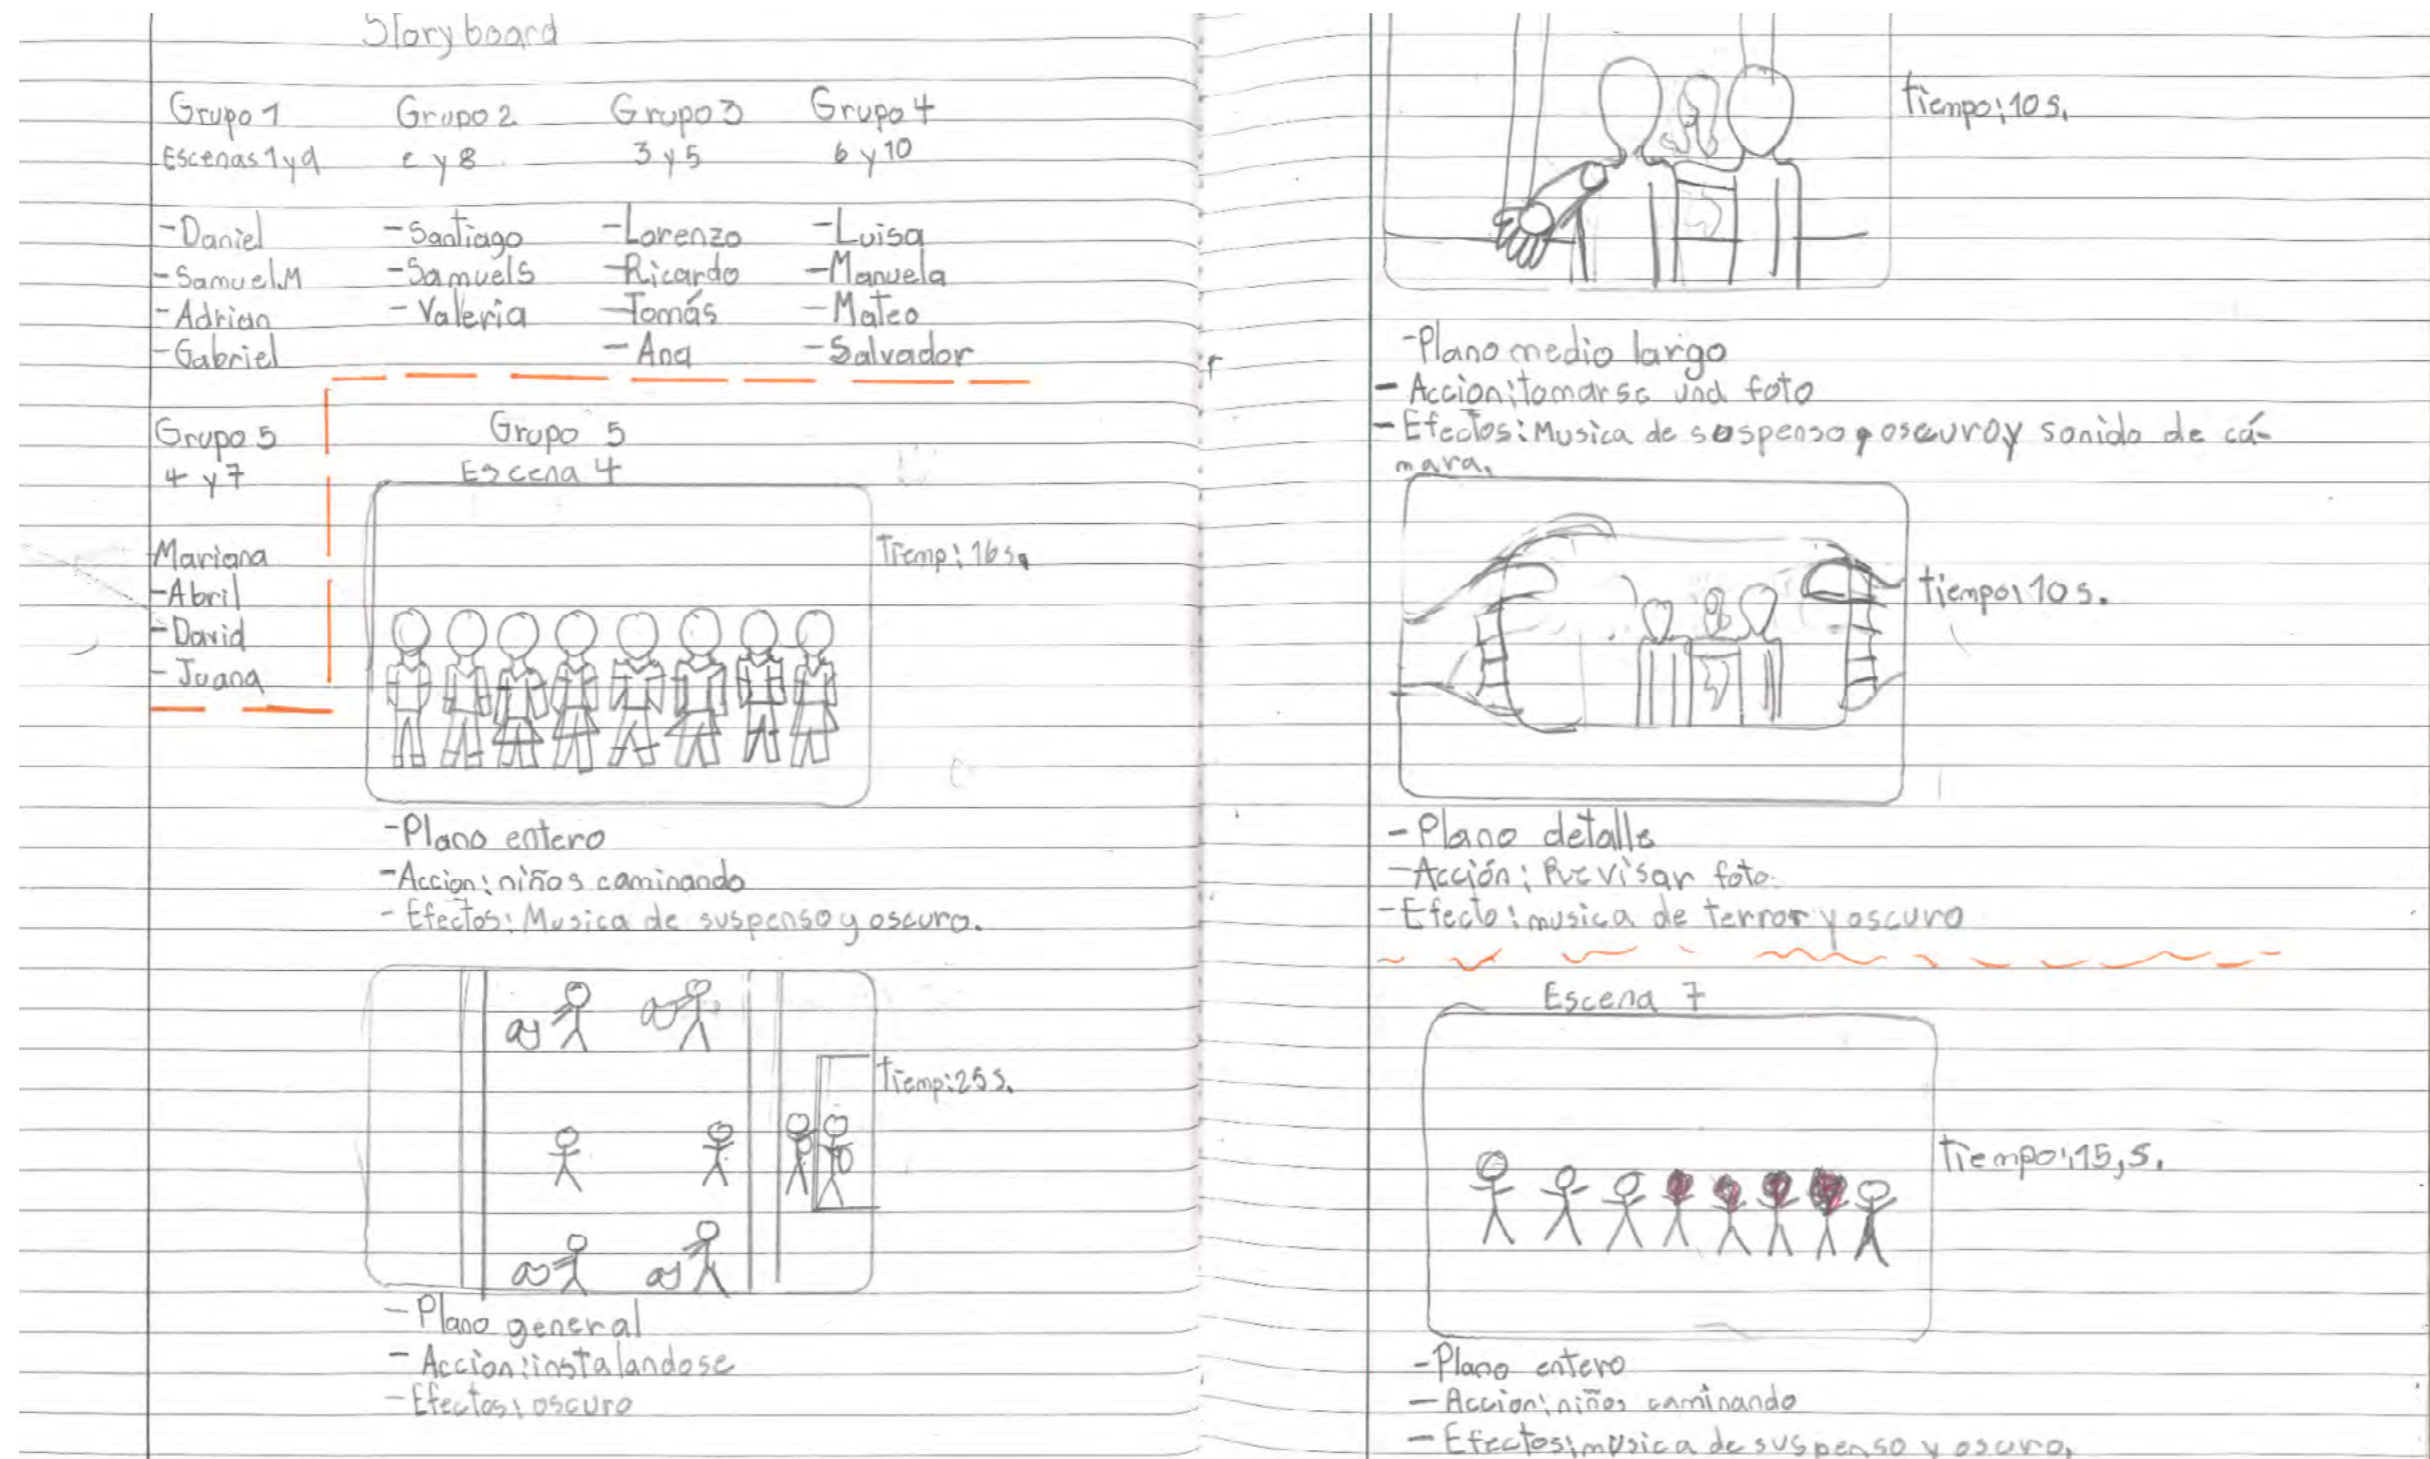 Storyboard
Grupo 1 Grupo 2 Grupo 3 Grupo 4
Escenas 1 y 9 2 y 8 3 y 5 6 y 10
-Daniel -Santiago -Lorenzo -Luisa
-Samuel.M -Samuel S -Ricardo -Manuela
-Adrian -Valeria -Tomás -Mateo
-Gabriel -Ana -Salvador
Grupo 5
4 y 7
Mariana
-Abril
-David
-Juana
Grupo 5
Escena 4
Tiemp: 16 s.
-Plano entero
-Accion: niños caminando
-Efectos: Musica de suspenso y oscuro.
Tiemp: 25 s.
-Plano general
-Accion: instalandose
-Efectos: oscuro
tiempo: 10 s.
-Plano medio largo
-Accion: tomarse una foto
-Efectos: Musica de suspenso, oscuro y sonido de cá-
mara.
tiempo: 10 s.
-Plano detalle
-Acción: Revisar foto.
-Efecto: musica de terror y oscuro
Escena 7
Tiempo: 15, s.
-Plano entero
-Accion: niños caminando
-Efectos: musica de suspenso y oscuro.